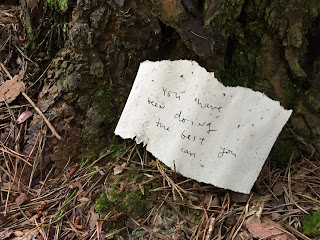 You have
been doing
the best
can you